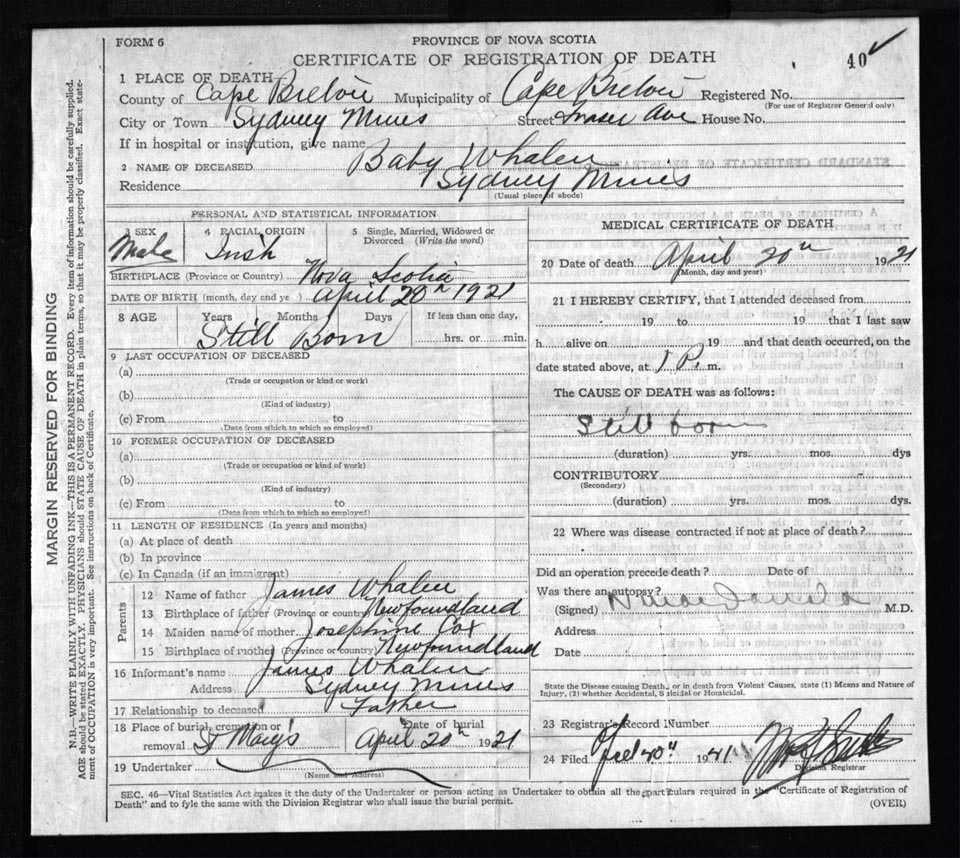 FORM 6
PROVINCE OF NOVA SCOTIA
CERTIFICATE OF REGISTRATION OF DEATH
40
1 PLACE OF DEATH
County of Cape Breton Municipality of Cape Breton Registered No.
(For use of Registrar General only)
City or Town Sydney Mines Street Fraser Ave House No.
If in hospital or institution, give name
2 NAME OF DECEASED Baby Whalen
Residence Sydney Mines
(Usual place of abode)
MARGIN RESERVED FOR BINDING
N.B.—WRITE PLAINLY WITH UNFADING INK—THIS IS A PERMANENT RECORD. Every item of information should be carefully supplied.
AGE should be stated EXACTLY. PHYSICIANS should STATE CAUSE OF DEATH in plain terms, so that it may be properly classified. Exact state-
ment of OCCUPATION is very important. See instructions on back of Certificate.
PERSONAL AND STATISTICAL INFORMATION
3 SEX 4 RACIAL ORIGIN 5 Single, Married, Widowed or
Divorced (Write the word)
Male Irish
BIRTHPLACE (Province or Country) Nova Scotia
DATE OF BIRTH (month, day and ye ) April 20th 1921
8 AGE Years Months Days If less than one day,
Still Born hrs. or min.
9 LAST OCCUPATION OF DECEASED
(a)
(Trade or occupation or kind or work)
(b)
(Kind of industry)
(c) From to
(Date from which to which as employed)
10 FORMER OCCUPATION OF DECEASED
(a)
(Trade or occupation or kind of work)
(b)
(Kind of industry)
(c) From to
(Date from which to which so employed)
11 LENGTH OF RESIDENCE (In years and months)
(a) At place of death
(b) In province
(c) In Canada (if an immigrant)
Parents
12 Name of father James Whalen
13 Birthplace of father (Province or country) Newfoundland
14 Maiden name of mother Josephine Cox
15 Birthplace of mother (Province or country) Newfoundland
16 Informant's name James Whalen
Address Sydney Mines
17 Relationship to deceased Father
18 Place of burial, cremation or Date of burial
removal St Mary's April 20th 1921
19 Undertaker
(Name and Address)
MEDICAL CERTIFICATE OF DEATH
20 Date of death April 20th 1921
(Month, day and year)
21 I HEREBY CERTIFY, that I attended deceased from
19 to 19 that I last saw
h alive on 19 and that death occurred, on the
date stated above, at 1 P. m.
The CAUSE OF DEATH was as follows:
Still born
(duration) yrs. mos. dys
CONTRIBUTORY
(Secondary)
(duration) yrs. mos. dys.
22 Where was disease contracted if not at place of death?
Did an operation precede death? Date of
Was there an autopsy?
(Signed) M.D.
Address
Date
State the Disease causing Death, or in death from Violent Causes, state (1) Means and Nature of
Injury, (2) whether Accidental, Suicidal or Homicidal.
23 Registrar's Record Number
24 Filed
Division Registrar
SEC. 46—Vital Statistics Act makes it the duty of the Undertaker or person acting as Undertaker to obtain all the particulars required in the "Certificate of Registration of
Death" and to fyle the same with the Division Registrar who shall issue the burial permit.
(OVER)